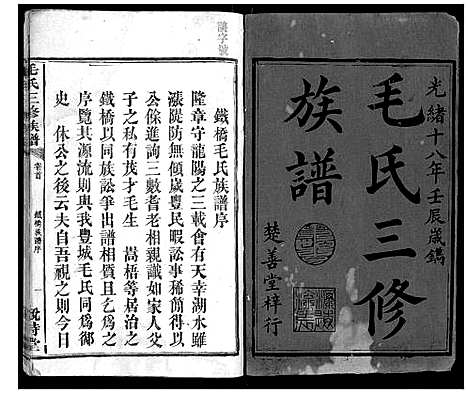 光緒十八年壬辰歲鐫
毛氏三修
族譜
楚善堂梓行
鐵橋毛氏族譜序
隆章守龍陽之三載會有天幸湖水雖
漲隄防無傾歲豐民暇訟事稀簡得以
公餘進詢三數耆老相親識如家人父
子之私有茂才毛生 嵩梧等居治之
鐵橋以同族訟爭出譜相質且乞為之
序覽其源流則與我豐城毛氏同為御
史 休公之後云夫自吾視之則今日
毛氏三修族譜
卷首
鐵橋族譜序
一
說詩堂